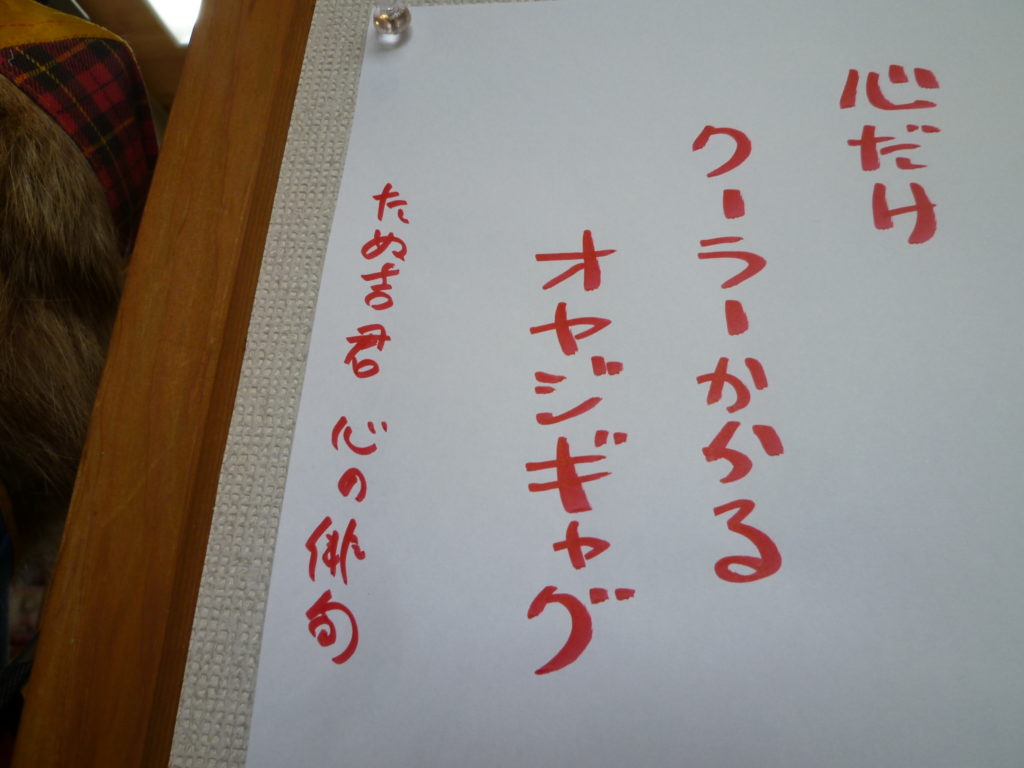 心だけ
クーラーかかる
オヤジギャグ
たぬ吉君 心の俳句